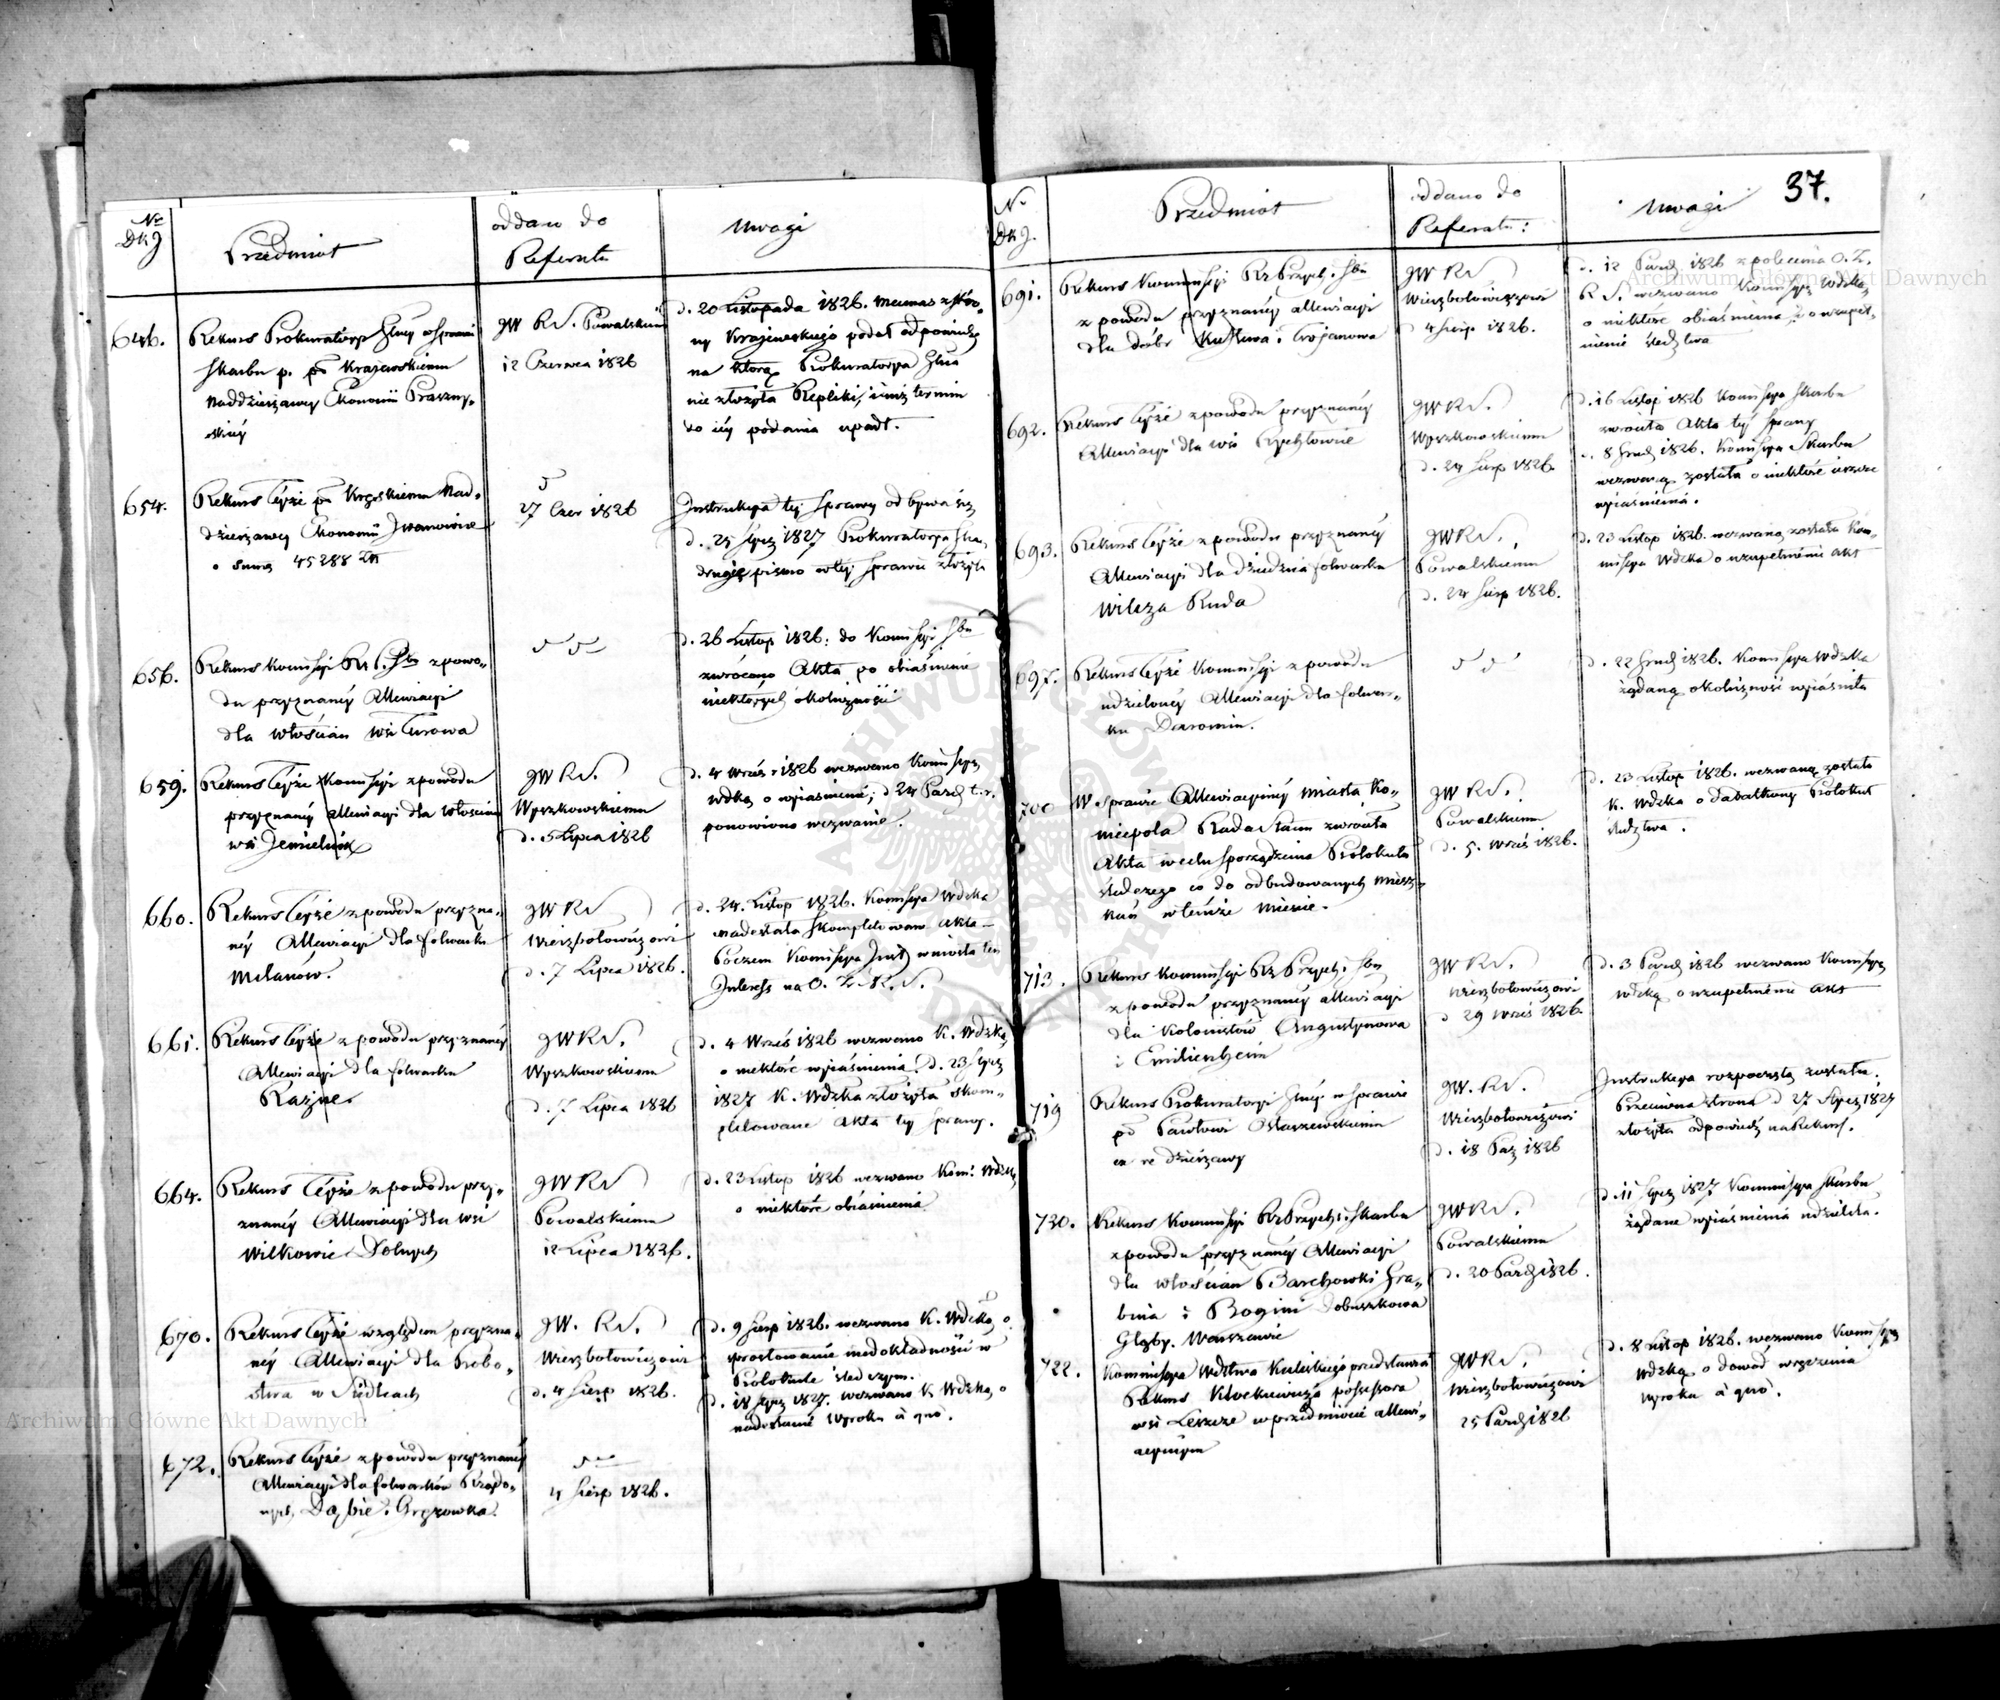 Nr
Dkj
Przedmiot
oddano do
Referatu
Uwagi
646.
Rekurs Prokuratoryi Głnej w sprawie
Skarbu p. Krajewskiemu
Naddzierżawcy Ekonomii Przasny-
skiej
JW RS. Powalskiemu
12 Czerwca 1826
d. 20 Listopada 1826. Mecenas
Krajewskiego podał odpowiedź
na którą Prokuratorya Głna
nie złożyła Repliki, i już termin
do jej podania upadł.
654.
Rekurs Tejże Nad-
dzierżawcy Ekonomii Iwanowice
o Summę 45288 Zł
27 Czer 1826
Instrukcya tej Sprawy odbywa się
d. 25 Stycz 1827 Prokuratorya
drugie pismo w tej Sprawie złożyła
656.
Rekurs Kommissyi z powo-
du przyznanej Allewiacyi
dla Włościan wsi Turowa
d. 26 Listop 1826. do Komissyi Sbu
zwrócono Akta po objaśnienie
niektórych okoliczności
659.
Rekurs Tejże Komissyi z powodu
przyznanej allewiacyi dla Włościan
wsi Jemielnik
JW RS.
Wyszkowskiemu
d. 5 Lipca 1826
d. 4 Wrześ. 1826 wezwano Komissyę
Wdzką o wyjaśnienie; d 24 Paźd t.r.
ponowiono wezwanie.
660.
Rekurs Tejże z powodu przyzna-
nej Allewiacyi dla folwarku
Milanów.
JW RS
Wierzbołowiczowi
d. 7 Lipca 1826.
d. 24. Listop 1826. Komissya Wdzka
nadesłała skompletowane Akta —
Poczem Komissya wniosła ten
Interess na O. Z. R. S.
661.
Rekurs Tejże z powodu przyznanej
Allewiacyi dla folwarku
JW RS.
Wyszkowskiemu
d. 7 Lipca 1826
d. 4 Wrześ 1826 wezwano K. Wdzką
o niektóre wyjaśnienia. d. 23 Stycz
1827 K. Wdzka złożyła skom-
pletowane Akta tej Sprawy.
664.
Rekurs Tejże z powodu przy-
znanej Allewiacyi dla wsi
Wilkowic Dolnych
JW RS
Powalskiemu
12 Lipca 1826.
d. 23 Listop 1826 wezwano Kom. Wdzką
o niektóre objaśnienia
670.
Rekurs Tejże względem przyzna-
nej Allewiacyi dla Probo-
stwa w Siedlcach
JW. RS.
Wierzbołowiczowi
d. 4 Sierp 1826.
d. 9 Sierp 1826. wezwano K. Wdzką o
sprostowanie niedokładności w
Protokule śledczym.
d. 18 Stycz 1827. Wezwano K Wdzką o
nadesłanie Wyroku à quo.
672.
Rekurs Tejże z powodu przyznanej
Allewiacyi dla folwarków Rządo-
wych Dąbie i Gręzówka.
4 Sierp 1826.
37.
Nr
Dkj.
Przedmiot
oddano do
Referatu:
Uwagi
691.
Rekurs Kommissyi Rz Przych. i Sbu
z powodu przyznanej allewiacyi
dla dóbr i Trojanowa
JW RS
Wierzbołowiczowi
d 4 Sierp 1826.
d. 12 Paźd 1826 z polecenia O. Z.
R S. wezwano Komissyę Wdzką
o niektóre objaśnienia, i o uzupeł-
nienie śledztwa
692.
Rekurs Tejże z powodu przyznanej
Allewiacyi dla wsi Rychłowic
JW RS.
Wyszkowskiemu
d. 24 Sierp 1826.
d. 16 Listop 1826 Komissya Skarbu
zwróciła Akta tej Sprawy
d. 8 Grud 1826. Komissya Skarbu
wezwaną została o niektóre jeszcze
wyjaśnienia.
693.
Rekurs Tejże z powodu przyznanej
Allewiacyi dla dziedzica folwarku
Wilcza Ruda
JW RS.
Powalskiemu
d. 24 Sierp 1826.
d. 23 Listop 1826. wezwaną została Kom-
missya Wdzka o uzupełnienie akt
697.
Rekurs Tejże Kommissyi z powodu
udzielonej Allewiacyi dla folwar-
ku Daromin.
d. 22 Grud 1826. Komissya Wdzka
żądaną okoliczność wyjaśniła
700
W Sprawie Allewiacyjnej miasta Ko-
niecpola Rada Stanu zwróciła
Akta w celu sporządzenia Protokułu
śledczego co do odbudowanych miesz-
kań w temże mieście.
JW RS.
Powalskiemu
d. 5. Wrześ 1826.
d. 23 Listop 1826. wezwaną została
K. Wdzka o dodatkowy Protokuł
śledztwa.
713.
Rekurs Kommissyi Rz Przych. i Sbu
z powodu przyznanej allewiacyi
dla Kolonistów Augustynowa
i Emilienheim
JW RS.
Wierzbołowiczowi
d 29 Wrześ 1826.
d. 3 Paźd 1826 wezwano Komissyę
Wdzką o uzupełnienie akt
719
Rekurs Prokuratoryi Głnej w Sprawie
Pawłowi Olszewskiemu
ex re dzierżawy
JW. RS.
Wierzbołowiczowi
d. 18 Paź 1826
Instrukcya rozpoczętą została.
Przeciwna strona d 27 Stycz 1827
złożyła odpowiedź na Rekurs.
730.
Rekurs Kommissyi Rz Przych i Skarbu
z powodu przyznanej Allewiacyi
dla Włościan
JW RS.
Powalskiemu
d. 20 Paźdz 1826.
d. 11 Stycz 1827 Kommissya Skarbu
żądane wyjaśnienia udzieliła.
722.
Kommissya Wdztwa Kaliskiego przedstawia
Rekurs possessora
wsi Leszcze w przedmiocie allewi-
acyjnym
JW RS.
Wierzbołowiczowi
25 Paźdz 1826
d. 8 Listop 1826. wezwano Komissyę
Wdzką o dowód wręczenia
Wyroku à quo.
Archiwum Główne Akt Dawnych
Archiwum Główne Akt Dawnych